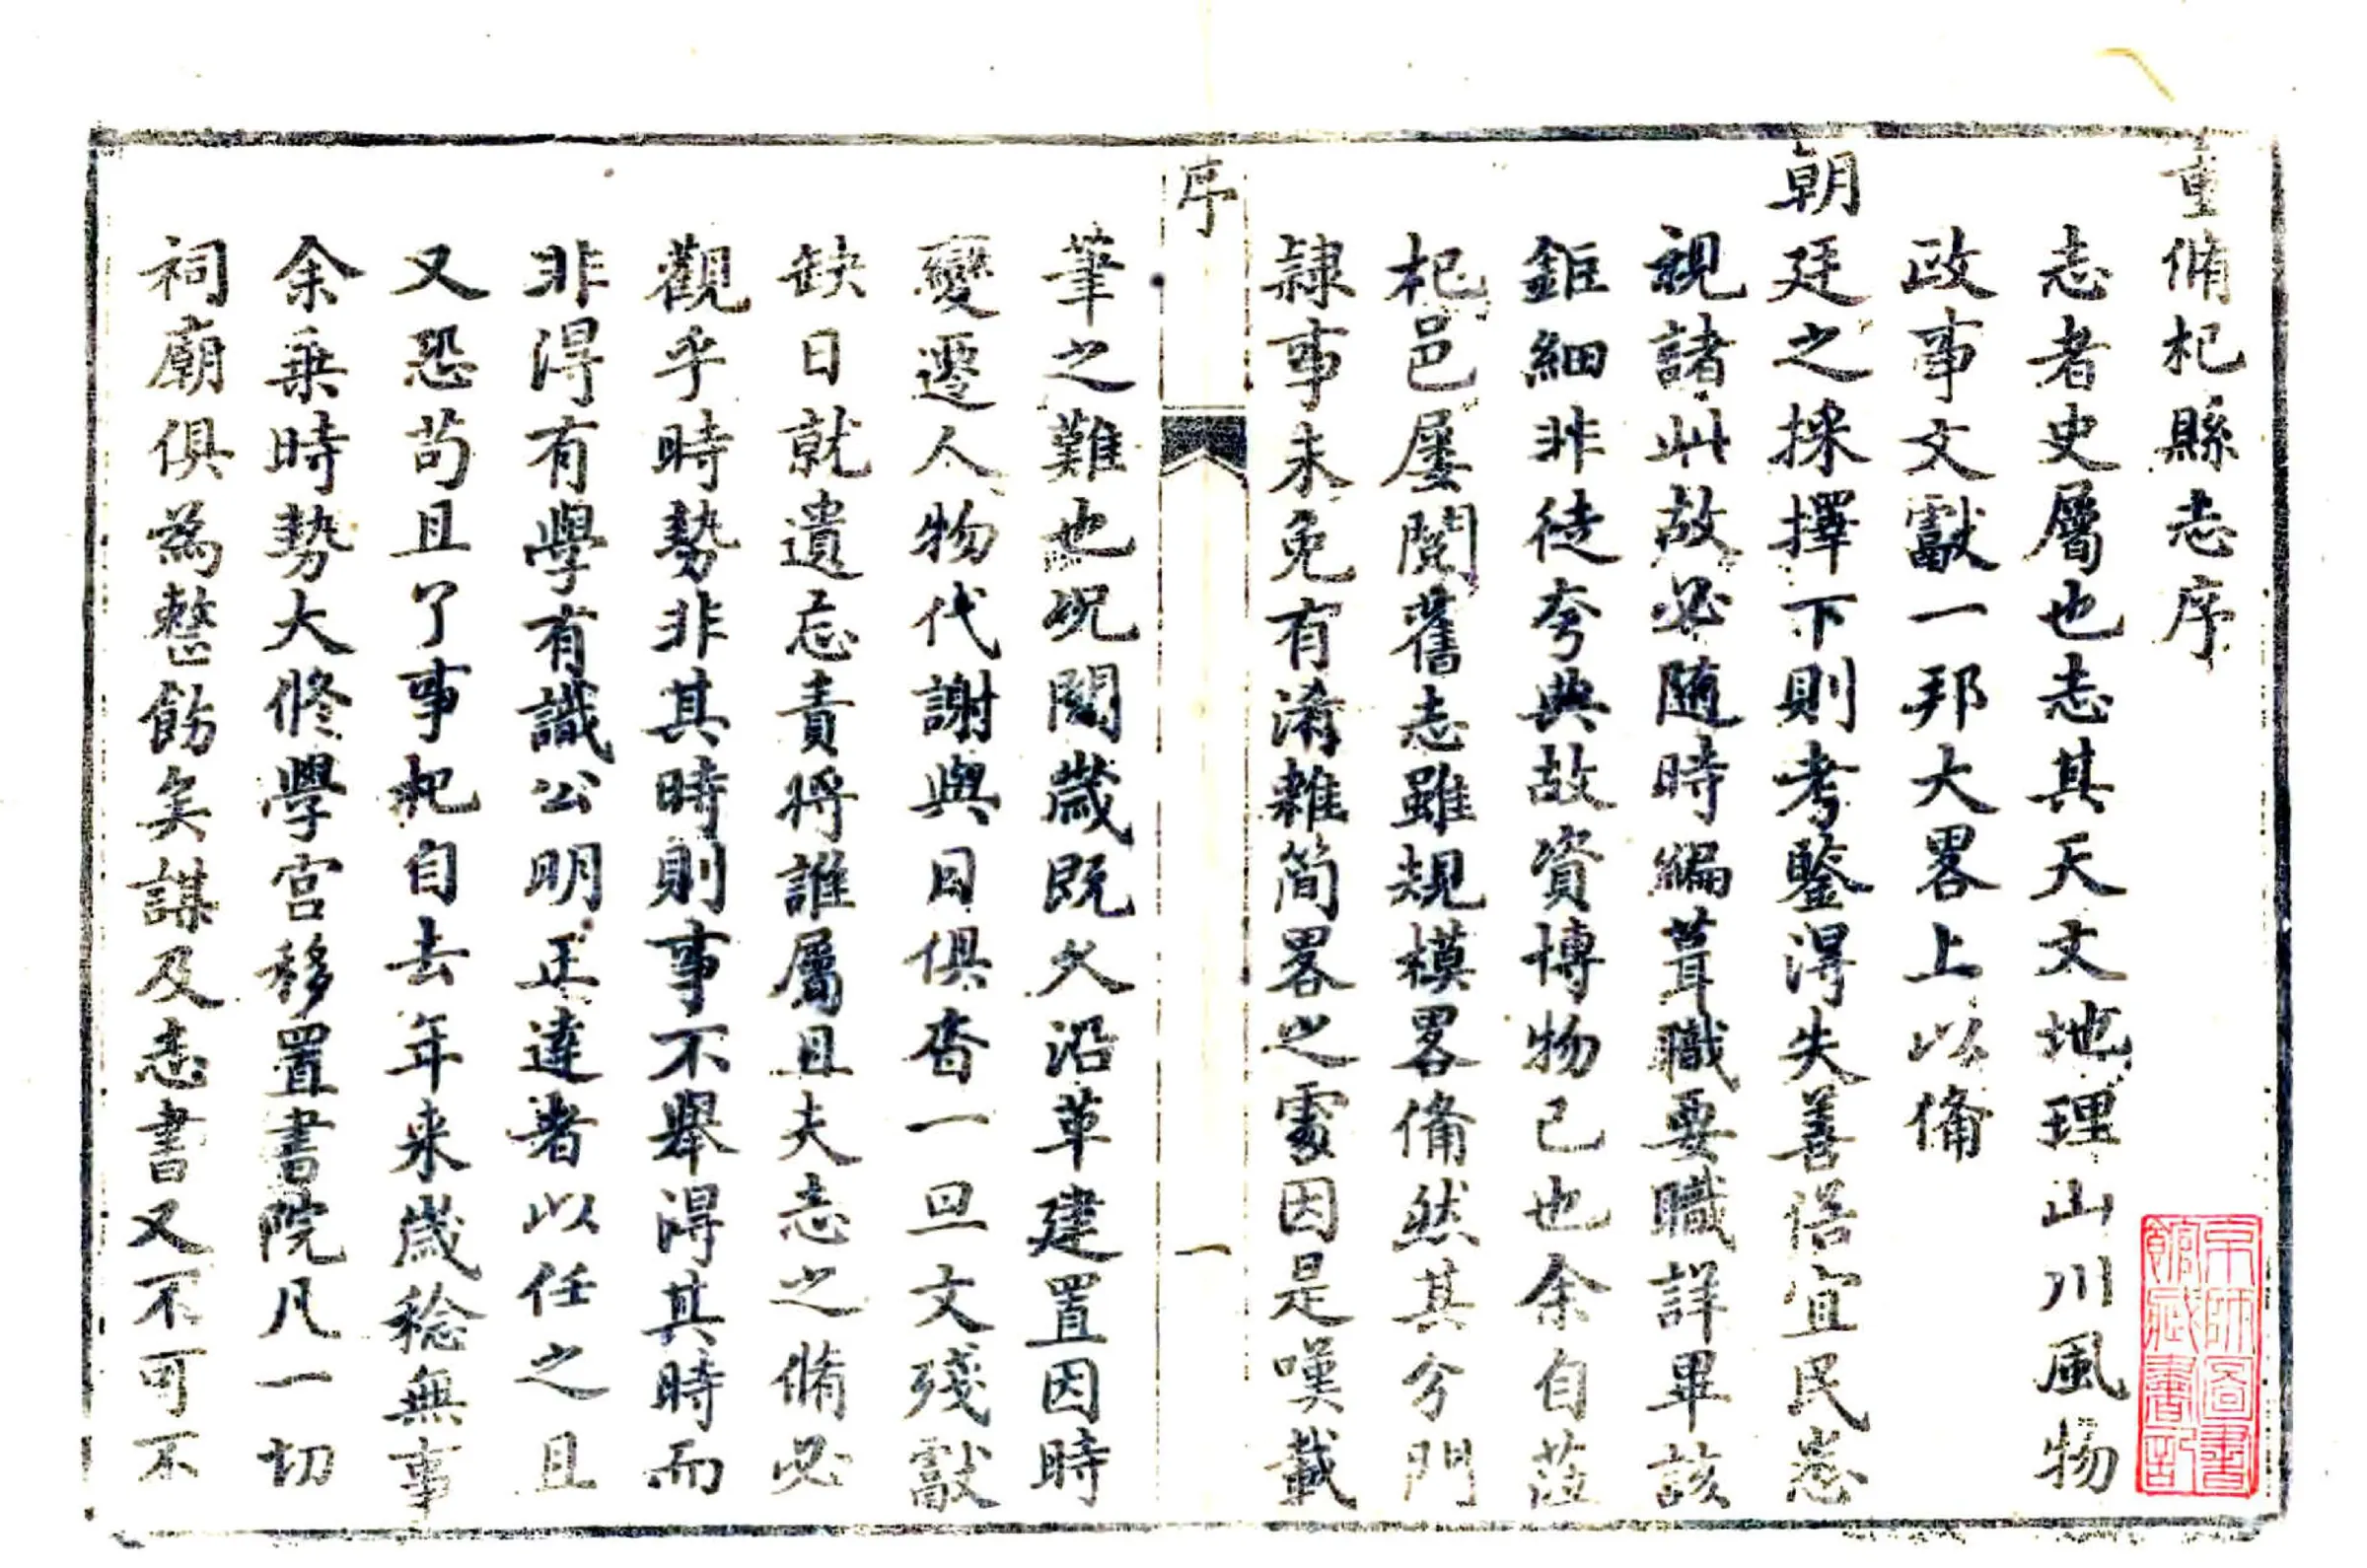 重脩杞縣志序
志者史屬也志其天文地理山川風物
政事文獻一邦大畧上以備
朝廷之採擇下則考鑒得失善俗宜民悉
視諸此故必随時編葺職要職詳畢該
鉅細非徒夸典故資博物已也余自蒞
杞邑屡閱舊志雖規模畧備然其分門
隷事未免有淆雜簡畧之處因是嘆載
序
一
筆之難也况閱歲既久沿革建置因時
變遷人物代謝與日俱杳一旦文殘獻
缺日就遺忘責將誰屬且夫志之脩必
觀乎時勢非其時則事不舉得其時而
非得有學有識公明正達者以任之且
又恐苟且了事杞自去年来歲稔無事
余乗時勢大修學宫移置書院凡一切
祠廟俱為整飭矣謀及志書又不可不
京師圖書
館藏書記